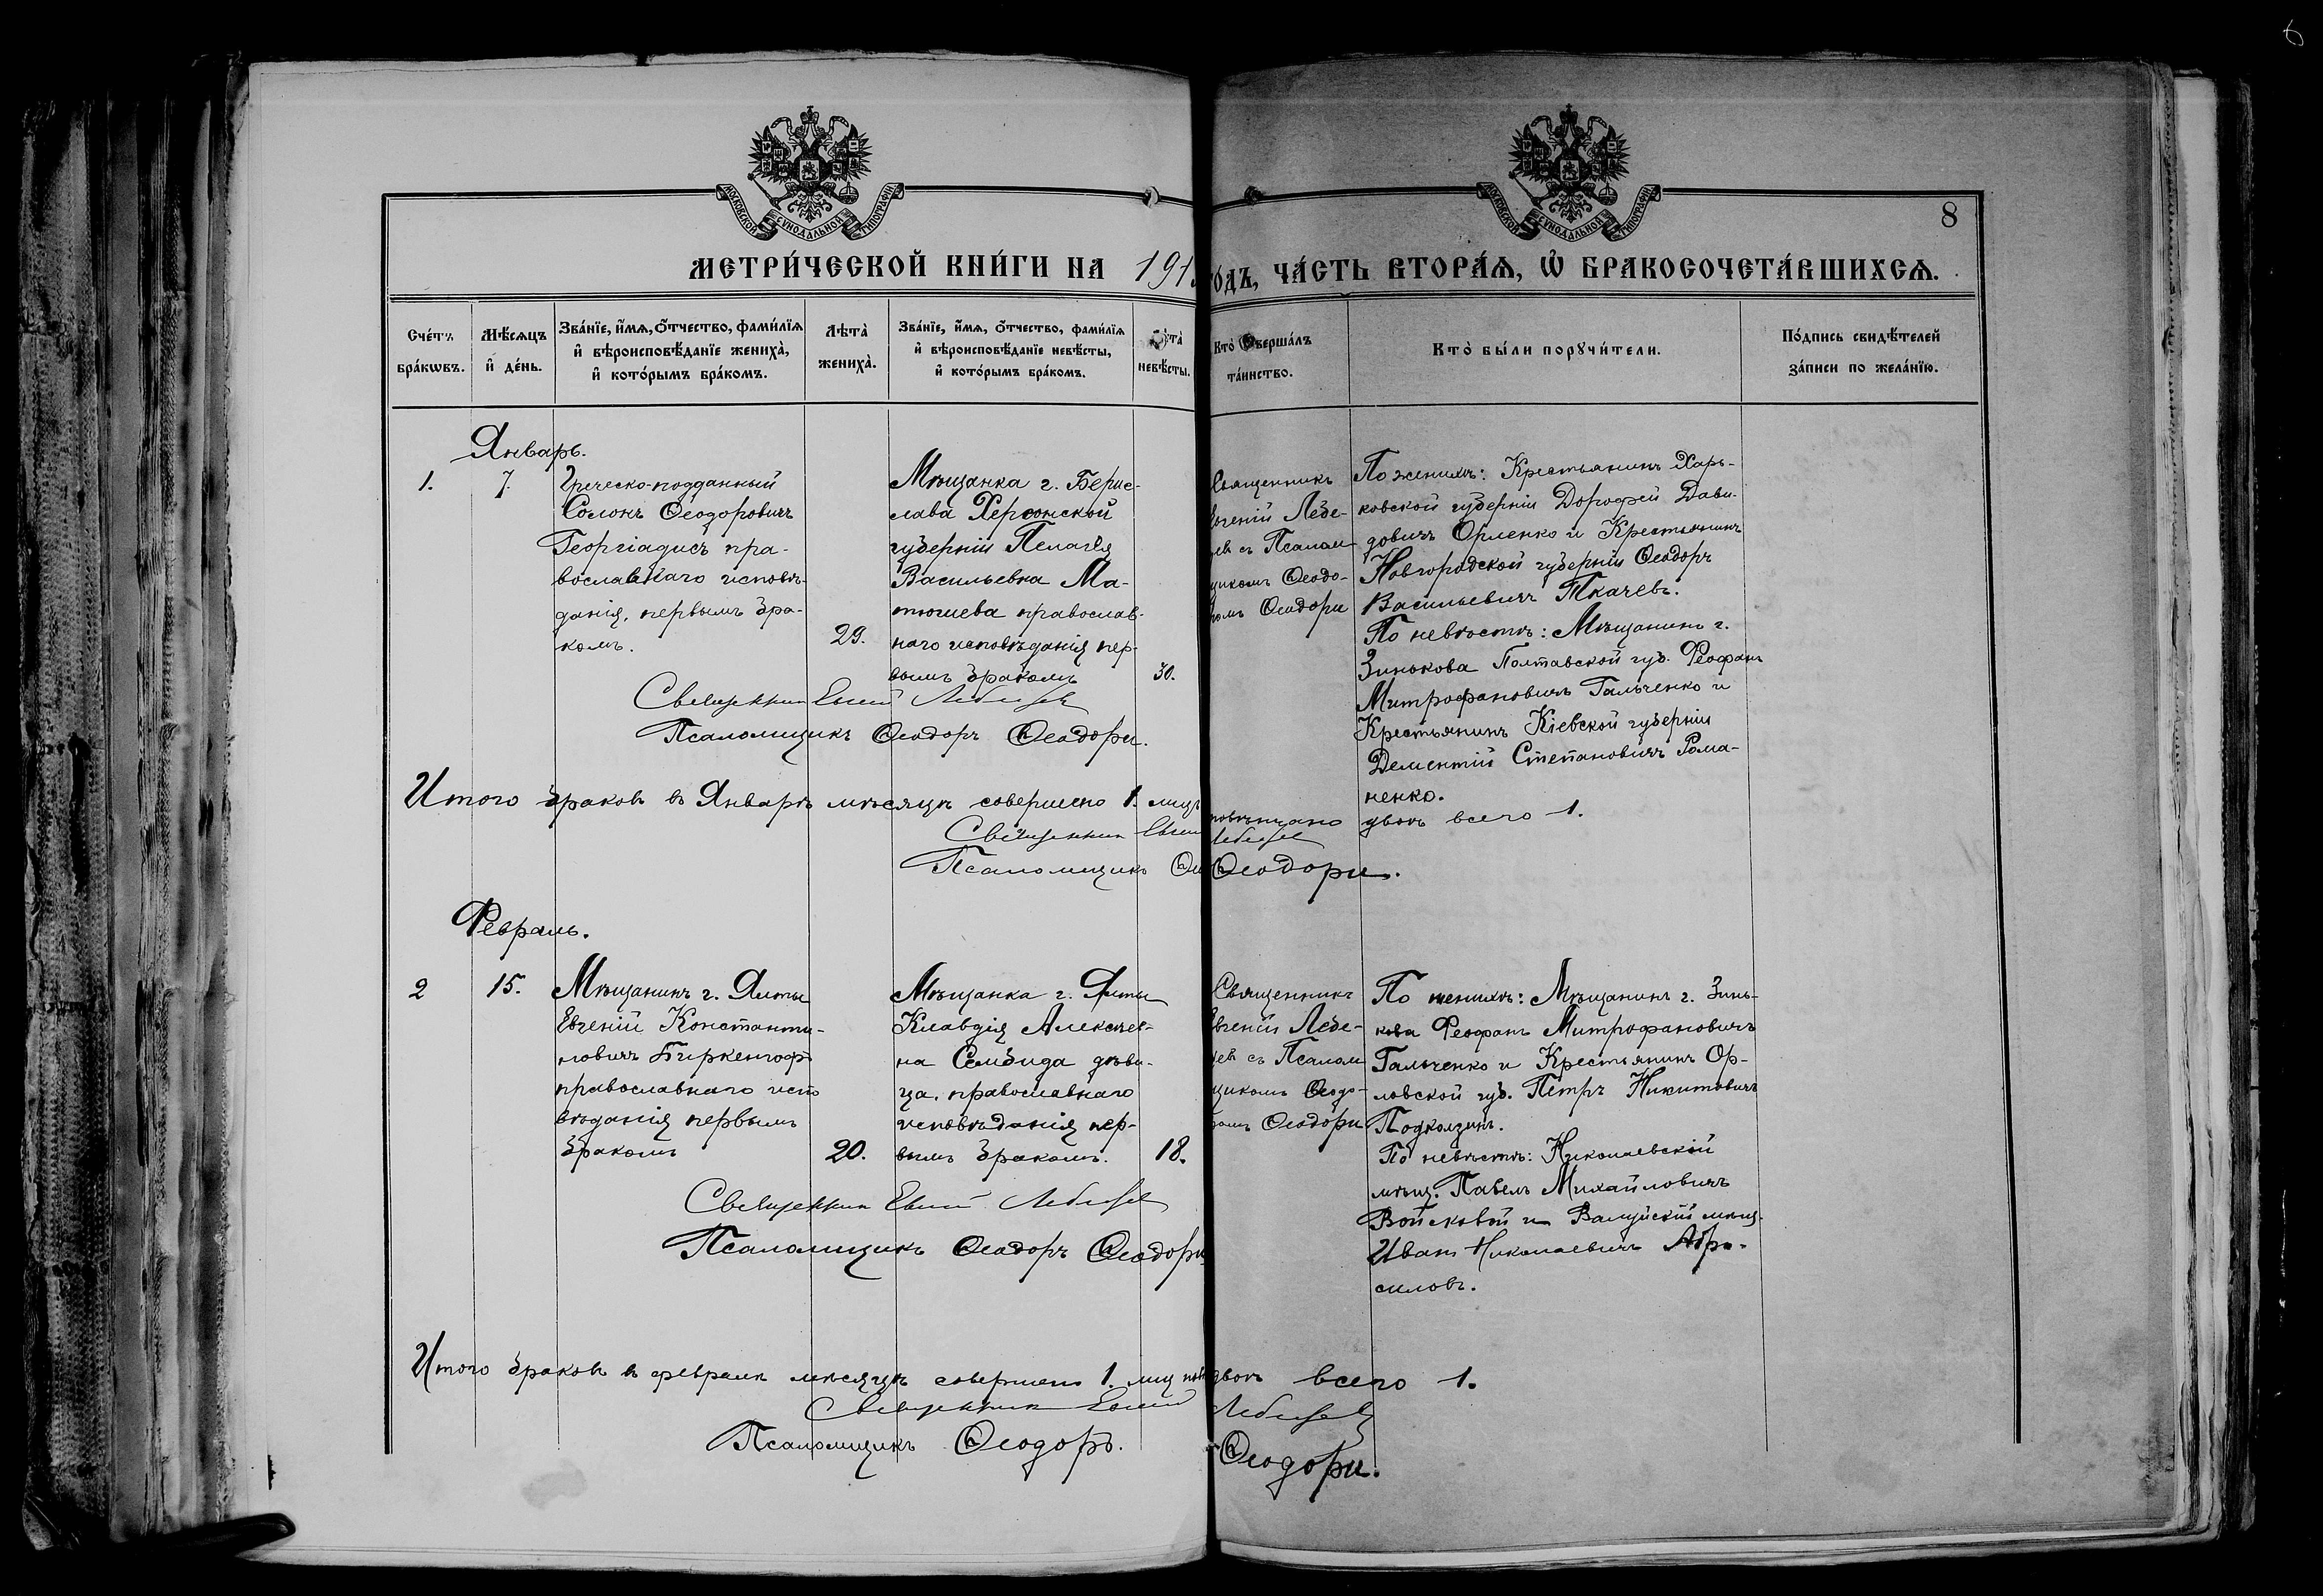 6
МОСКОВСКОЙ СѴНОДАЛЬНОЙ ТИПОГРАФІИ
МОСКОВСКОЙ СѴНОДАЛЬНОЙ ТИПОГРАФІИ
8
МЕТРИ́ЧЕСКОЙ КНИ́ГИ НА 191
ОДЪ, ЧА́СТЬ ВТОРА́Ѧ, Ѡ БРАКОСОЧЕТА́ВШИХСѦ.
Сче́тъ бра́кѡвъ.
Мѣ́сѧцъ и҆ де́нь.
Зва́нїе, и҆́мѧ, ѻ҆́тчество, фами́лїѧ и҆ вѣроисповѣ́данїе жениха̀, и҆ кото́рымъ бра́комъ.
Лѣта̀ жениха̀.
Зва́нїе, и҆́мѧ, ѻ҆́тчество, фами́лїѧ и҆ вѣроисповѣ́данїе невѣ́сты, и҆ кото́рымъ бра́комъ.
ѣта̀ невѣ́сты.
Кто̀ соверша́лъ та́инство.
Кто̀ бы́ли порꙋчи́тели.
По́дпись свидѣ́телей за́писи по жела́нїю.
Январь.
1.
7.
Греческо-подданный
Солонъ Ѳеодоровичъ
Георгіадисъ пра-
вославнаго исповѣ-
данія, первымъ бра-
комъ.
29.
Мѣщанка г. Берис-
лава Херсонской
губерніи Пелагея
Васильевна Ма-
тюшева православ-
наго исповѣданія пер-
вымъ бракомъ
30.
Священникъ
Евгеній Лебе-
девъ съ Псалом
щикомъ Ѳеодо-
ромъ Ѳеодори
По женихѣ: Крестьянинъ Харь-
ковской губерніи Дорофей Дави-
довичъ Орленко и Крестьянинъ
Новгородской губерніи Ѳеодоръ
Васильевичъ Ткачевъ.
По невѣстѣ: Мѣщанинъ г.
Зинькова Полтавской губ. Феофанъ
Митрофановичъ Гальченко и
Крестьянинъ Кіевской губерніи
Дементій Степановичъ Рома-
ненко.
Священникъ Евгеній Лебедевъ
Псаломщикъ Ѳеодоръ Ѳеодори.
Итого браковъ въ Январѣ мѣсяцѣ совершено 1. лицъ повѣнчано двое всего 1.
Священникъ Евгеній Лебедевъ
Псаломщикъ Ѳе Ѳеодори.
Февраль.
2
15.
Мѣщанинъ г. Ялты
Евгеній Константи-
новичъ Биркенгофъ
православнаго испо
вѣданія первымъ
бракомъ
20.
Мѣщанка г. Ялты
Клавдія Алексѣев-
на Сембида дѣви-
ца, православнаго
исповѣданія пер-
вымъ бракомъ.
18.
Священникъ
Евгеній Лебе-
девъ съ Псалом
щикомъ Ѳеодо-
ромъ Ѳеодори
По женихѣ: Мѣщанинъ г. Зинь-
кова Феофанъ Митрофановичъ
Гальченко и Крестьянинъ Ор-
ловской губ. Петръ Никитовичъ
Подколзинъ.
По невѣстѣ: Николаевскій
мѣщ. Павелъ Михайловичъ
Войсковой и Валуйскій мѣщ.
Иванъ Николаевичъ Абро-
силовъ.
Священникъ Евгеній Лебедевъ
Псаломщикъ Ѳеодоръ Ѳеодори
Итого браковъ въ февралѣ мѣсяцѣ совершено 1. лицъ двое всего 1.
Священникъ Евгеній Лебедевъ
Псаломщикъ Ѳеодоръ. Ѳеодори.